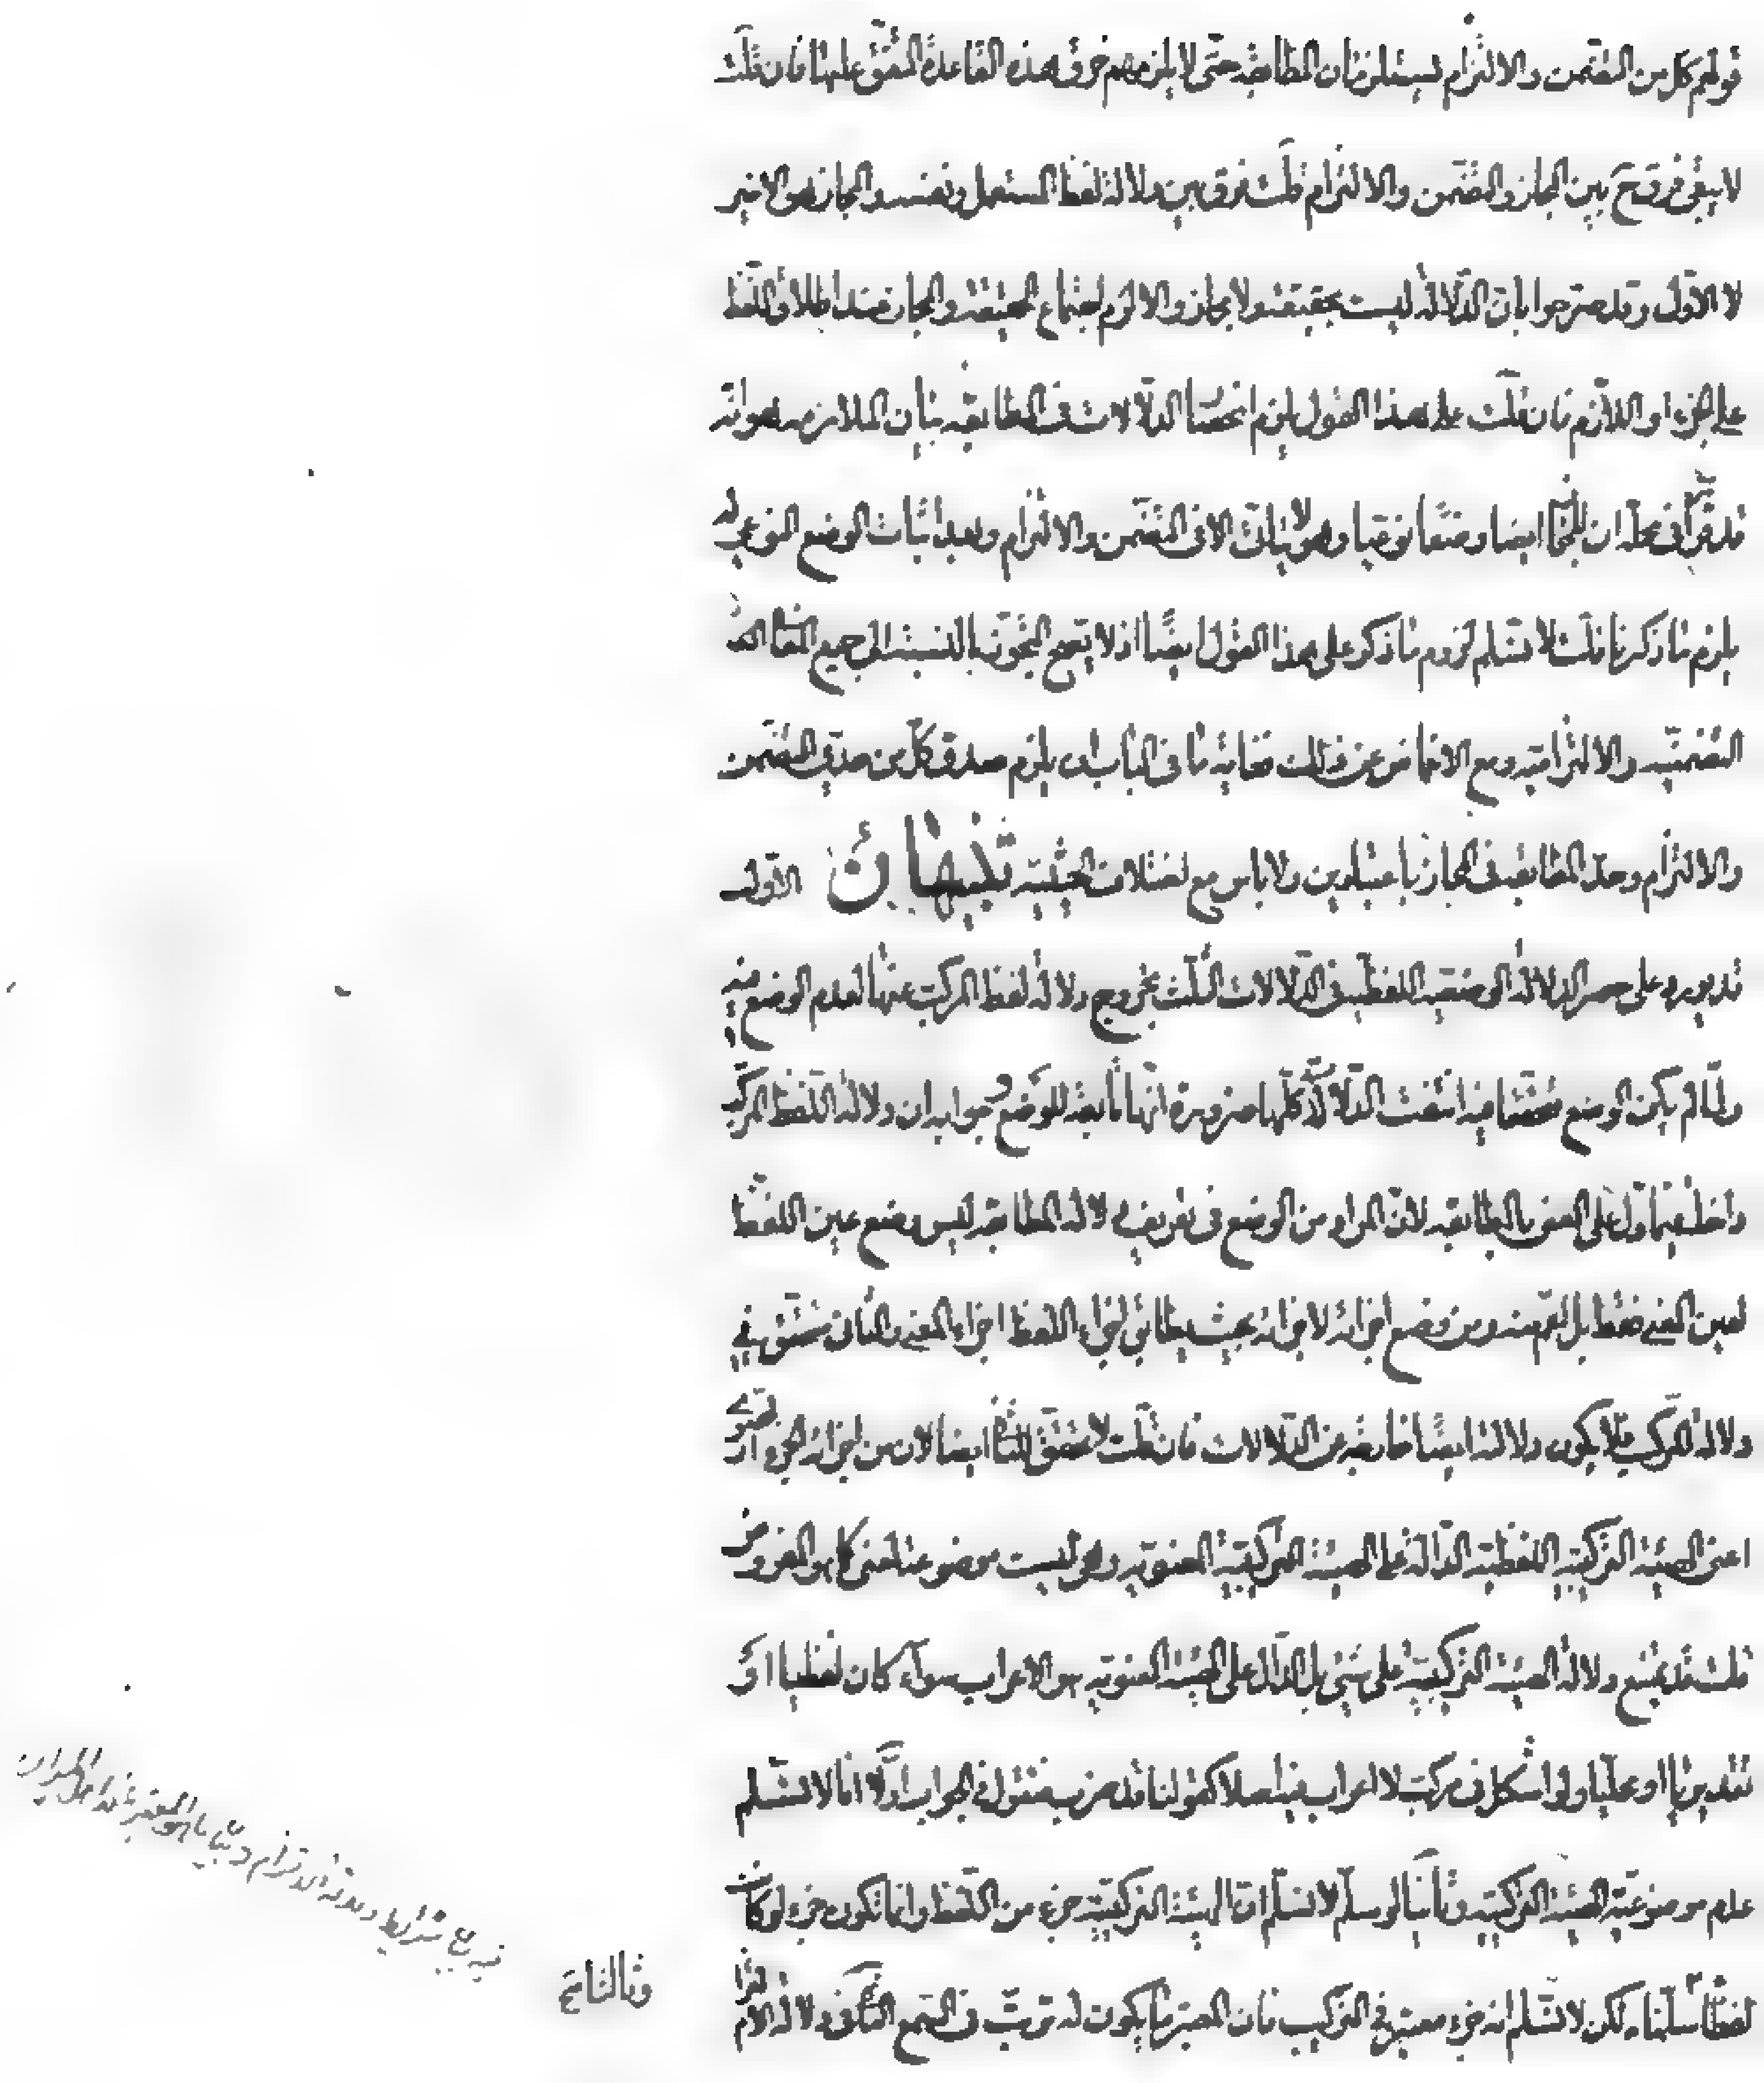 قولهم كل من التضمن والالتزام يستلزمان المطابقة حتى لا يلزمهم خرق هذه القاعدة المتفق عليها فان قلت
لا يبقى فرق ح بين المجاز والتضمن والالتزام قلت فرق بين دلالة لفظ المستعمل ونفسه والمجاز هو الاخير
لا الاول وقد صرحوا بان الدلالة ليست بحقيقة ولا مجاز والا لزم اجتماع الحقيقة والمجاز عند اطلاق اللفظ
على الجزء او اللازم فان قلت على هذا القول يلزم انحصار الدلالات في المطابقة بيان الملازمة هو انه
قد قرر في محله ان للمجاز ايضا وضعا نوعيا وهو لا يتأتى الا في التضمن والالتزام وبعد اثبات الوضع النوعي له
يلزم ما ذكرنا قلت لا نسلم لزوم ما ذكر على هذا القول ايضا اذ لا يصح التجوز بالنسبة الى جميع المعاني
التضمنية والالتزامية ومع الاغماض عن ذلك فغاية ما في الباب ان يلزم صدق كل من حدي التضمن
والالتزام وحد المطابقة في المجاز باعتبارين ولا باس مع اختلاف الحيثية تنبيهان الاول
قد يورد على حصر الدلالة الوضعية اللفظية في الدلالات الثلث بخروج دلالة لفظ المركب عنها لعدم الوضع فيه
ولما لم يكن الوضع متحققا فيه انتفت الدلالة كلها ضرورة انها تابعة للوضع وجوابه ان دلالة اللفظ المركب
داخلة فيما دل على المعنى بالمطابقة لان المراد من الوضع في تعريف دلالة المطابقة ليس وضع عين اللفظ
لعين المعنى فقط بل اعم منه ومن وضع اجزائه لاجزائه بحيث يطابق اجزاء اللفظ اجزاء المعنى والثاني متحقق في
دلالة المركب فلا يكون دلالته ايضا خارجة عن الدلالات فان قلت لا يتحقق الثاني ايضا لان من اجزائه الجزء الصوري
اعنى الهيئة التركيبية اللفظية الدالة على الهيئة التركيبية المعنوية وهي ليست موضوعة لمعنى كما هو المفروض
قلت قد يمنع دلالة الهيئة التركيبية على شيء بل الدال على الهيئة المعنوية هو الاعراب سواء كان لفظيا او
تقديريا او محليا ولو اشكل في مركب لا اعراب فيه اصلا كقولنا قد ضرب فنقول في الجواب اولا انا لا نسلم
عدم موضوعية الهيئة التركيبية وثانيا لو سلم لا نسلم ان الهيئة التركيبية جزء من اللفظ وانما تكون جزء لو كانت
لفظا سلمناه لكن لا نسلم انه جزء معتبر في التركيب فان المعتبر ما يكون له ترتب في السمع
وقال التاج